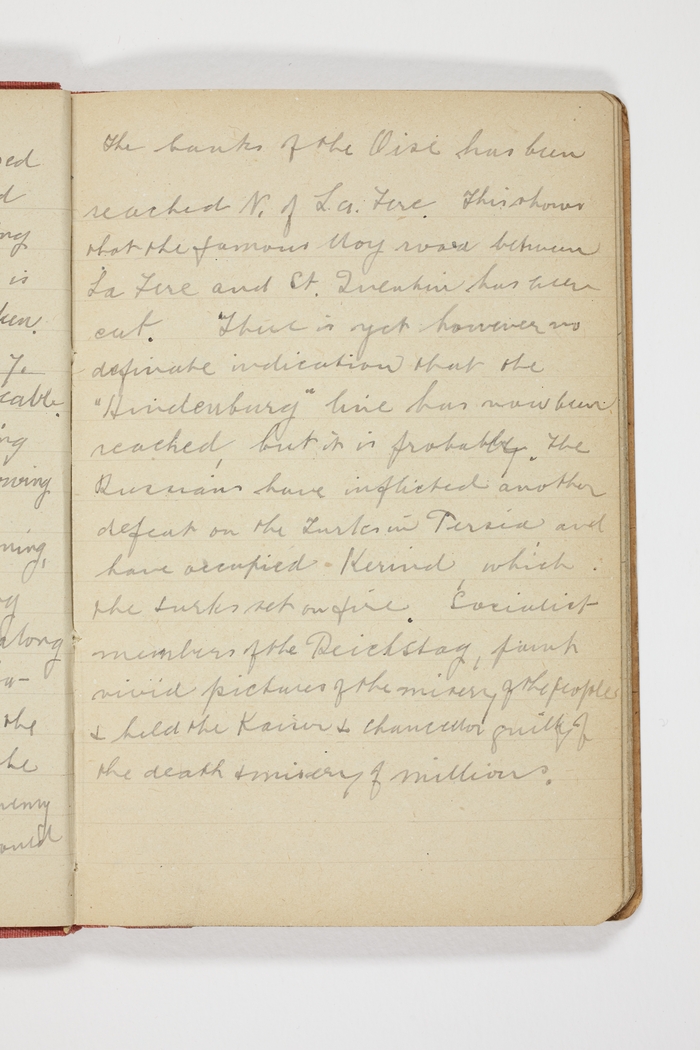 The banks of the Oise has been
reached N. of La. Fere. This shows
that the famous Moy road between
La Fere and St. Quentin has been
cut. There is yet however no
definate indication that the
"Hindenburg" line has now been
reached, but it is probably. The
Russians have inflicted another
defeat on the Turks in Persia and
have occupied Kerind, which
the turks set on fire. Socialist
members of the Reichstag, paint
vivid pictures of the misery of the people
& held the Kaiser & Chancellor guilty of
the death & misery of millions.
ed
d
ng
is
7.
cable
ng
owing
ning,
along
the
he
ould